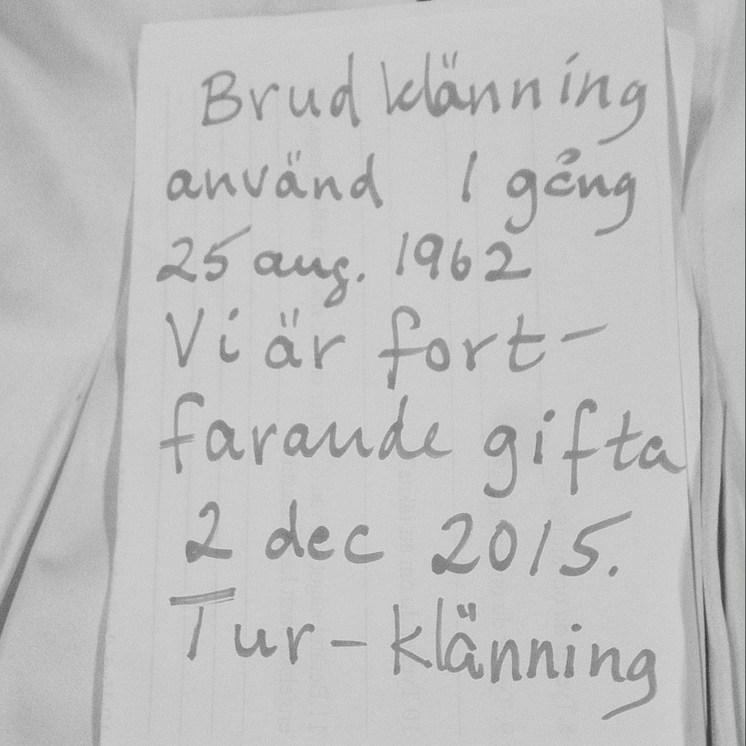 Brudklänning
använd 1 gång
25 aug. 1962
Vi är fort-
farande gifta
2 dec 2015.
Tur-klänning